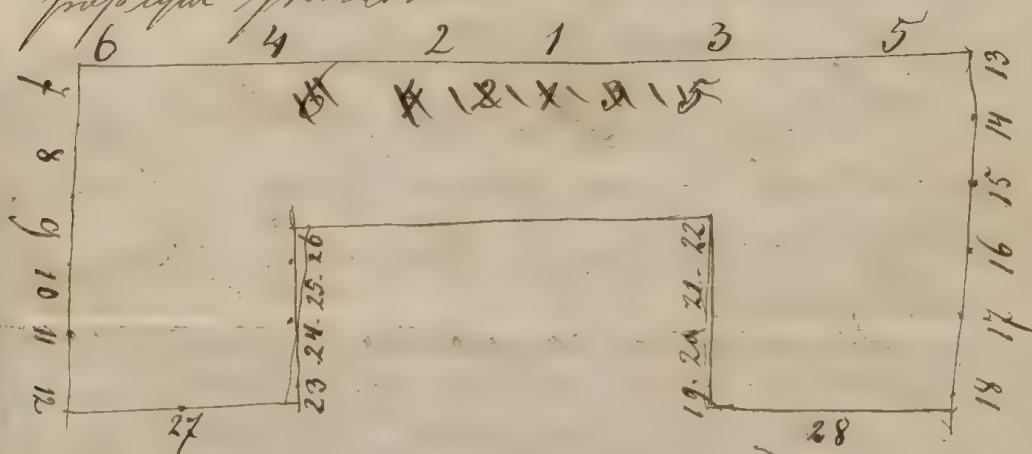 6 4 2 1 3 5
7
8
9
10
11
12
13
14
15
16
17
18
23-24-25-26
19-20 21-22
27
28